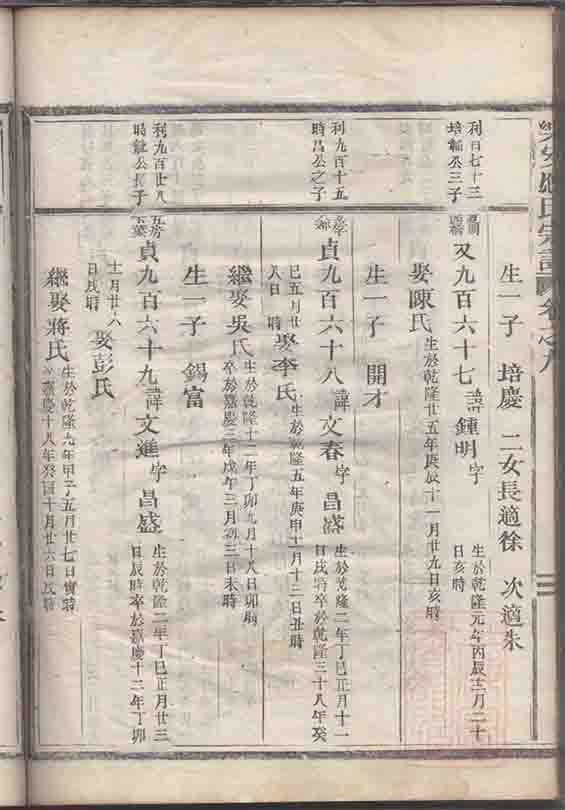 氏宗譜 卷之九
生一子 培慶 二女長適徐 次適朱
利百七十三
培 公三子
又九百六十七 諱 鍾明 字
生於乾隆元年丙辰十二月二十
日亥時
娶陳氏
生於乾隆廿五年庚辰十一月廿九日亥時
生一子 開才
利九百十五
時昌公之子
貞九百六十八 諱 文春 字 昌盛
生於乾隆二年丁巳正月十一
日戌時卒於乾隆三十八年癸
巳五月廿
八日 時 娶李氏
生於乾隆五年庚申十一月十三日丑時
繼娶吳氏
生於乾隆十二年丁卯九月十八日卯時
卒於嘉慶三年戊午三月初三日未時
生一子 錫富
利九百廿八
時 公長子
貞九百六十九 諱 文進 字 昌盛
生於乾隆二年丁巳正月廿三
日辰時卒於嘉慶十二年丁卯
十二月廿六
日戌時 娶彭氏
繼娶蔣氏
生於乾隆九年甲子五月廿七日寅時
嘉慶十八年癸酉十月廿六日戌時